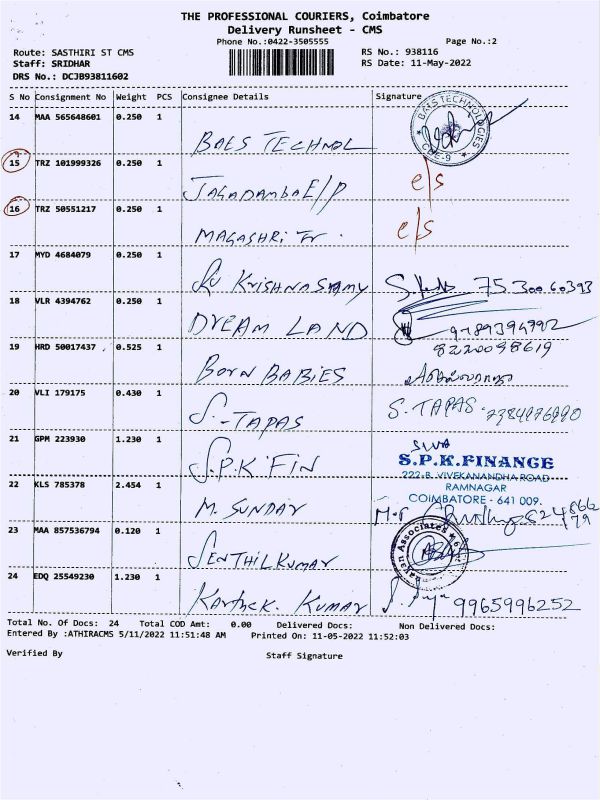 THE PROFESSIONAL COURIERS, Coimbatore
Delivery Runsheet - CMS
Phone No.:0422-3505555
Page No.:2
Route: SASTHIRI ST CMS
RS No.: 938116
Staff: SRIDHAR
RS Date: 11-May-2022
DRS No.: DCJB93811602
S No Consignment No Weight PCS Consignee Details Signature
14 MAA 565648601 0.250 1 BAES TECHNOL
BAES TECHNOLOGIES
CBE-9
15 TRZ 101999326 0.250 1 JAGADAMBA E/P e/s
16 TRZ 50551217 0.250 1 MAGASHRi Tr. e/s
17 MYD 4684079 0.250 1 KRISHNASAMY 75300 60393
18 VLR 4394762 0.250 1 DREAM LAND
8220098619
19 HRD 50017437 0.525 1 BORN BABIES
20 VLI 179175 0.430 1 S.-TAPAS S. TAPAS
21 GPM 223930 1.230 1 S.P.K FIN
S.P.K.FINANCE
222-B, VIVEKANANDHA ROAD
RAMNAGAR
COIMBATORE - 641 009.
22 KLS 785378 2.454 1 M. SUNDAR
23 MAA 857536794 0.120 1 SENTHIL KUMAR
Associates
24 EDQ 25549230 1.230 1 Karthick. KUMAR 9965996252
Total No. Of Docs: 24 Total COD Amt: 0.00 Delivered Docs: Non Delivered Docs:
Entered By :ATHIRACMS 5/11/2022 11:51:48 AM Printed On: 11-05-2022 11:52:03
Verified By Staff Signature